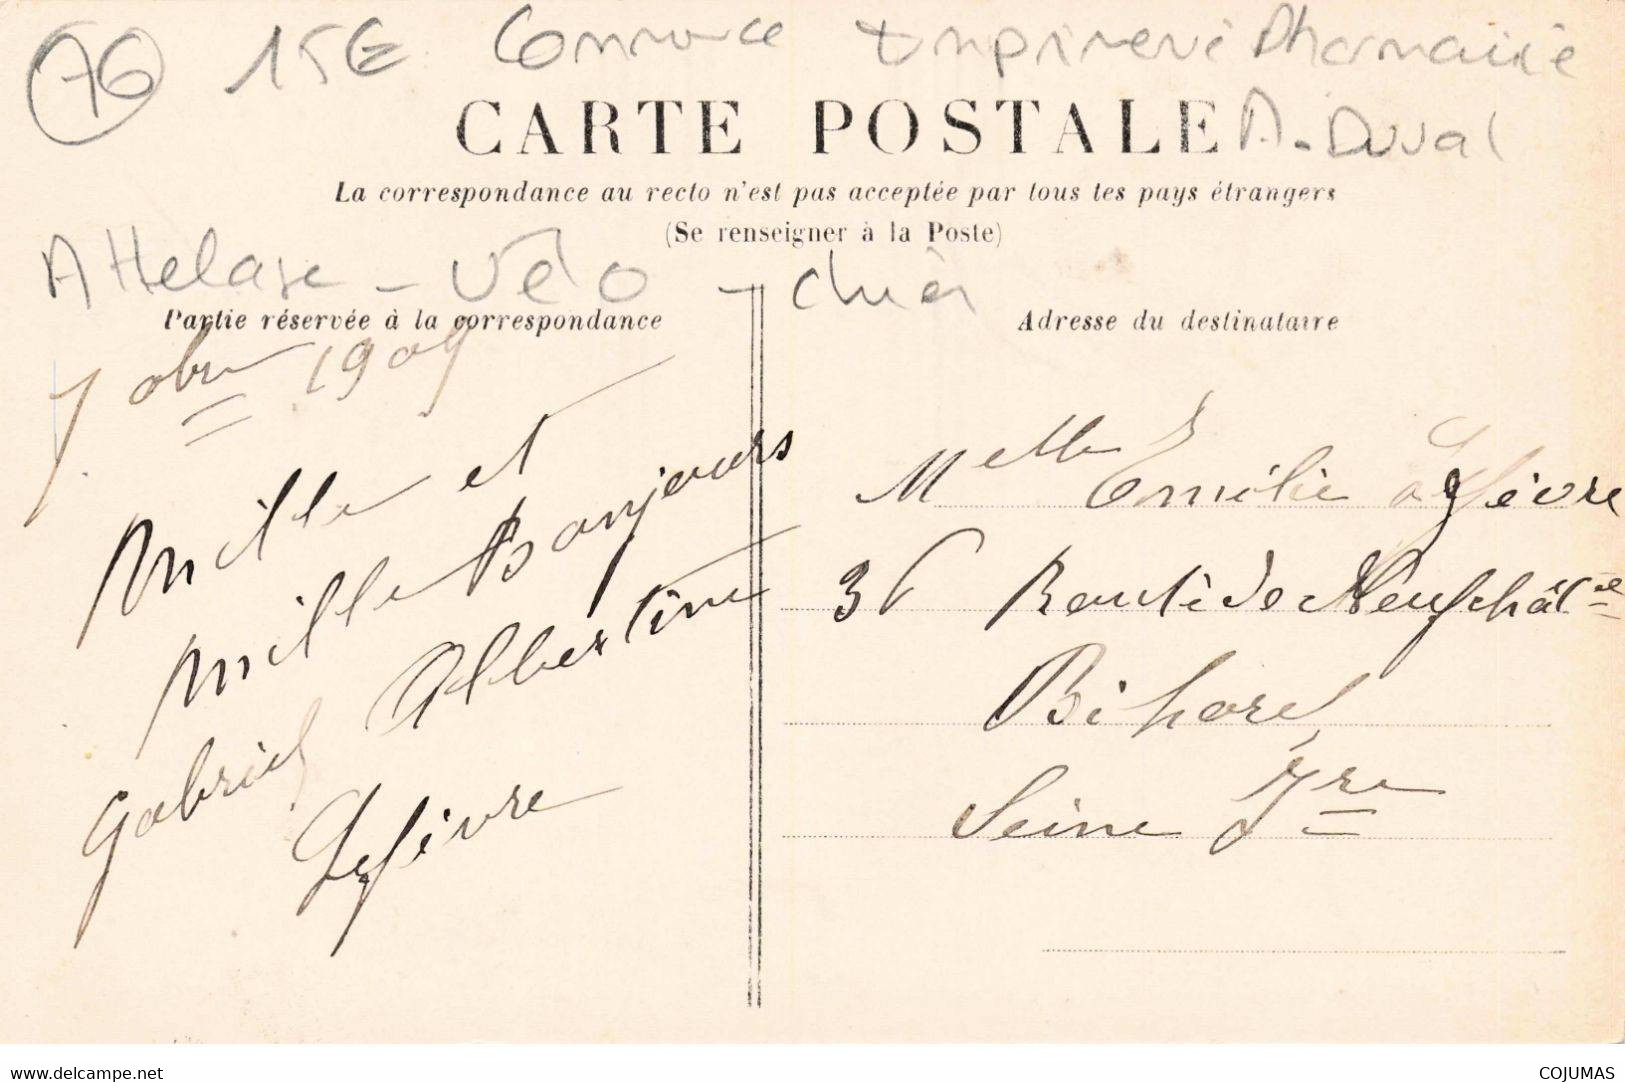 76 15€ Commerce Imprimerie Pharmacie
CARTE POSTALE A. Duval
La correspondance au recto n'est pas acceptée par tous les pays étrangers
(Se renseigner à la Poste)
Attelage - Vélo - chien
Partie réservée à la correspondance
Adresse du destinataire
7 obre 1909
Mille et
mille Bonjours
Gabriel Albertine
Lefèvre
Melle Emilie Lefèvre
36 Route de Neufchâtel
Bihorel
Seine Ire
www.delcampe.net
COJUMAS